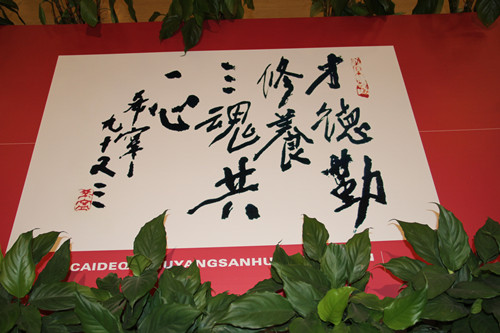 才德勤
修養
三魂共
一心
希寧
九十又三
CAIDEQ UYANGSANHU